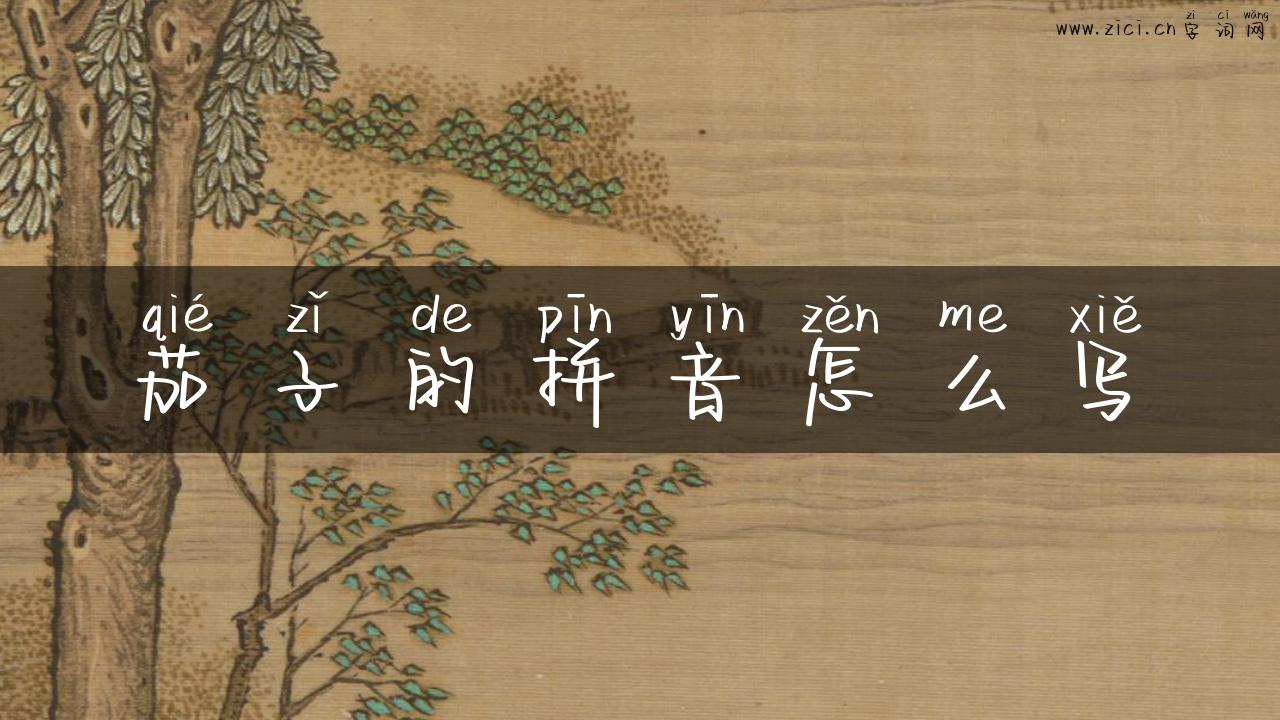 zì cí wǎng
www.zici.cn 字词网
qié zǐ de pīn yīn zěn me xiě
茄子的拼音怎么写